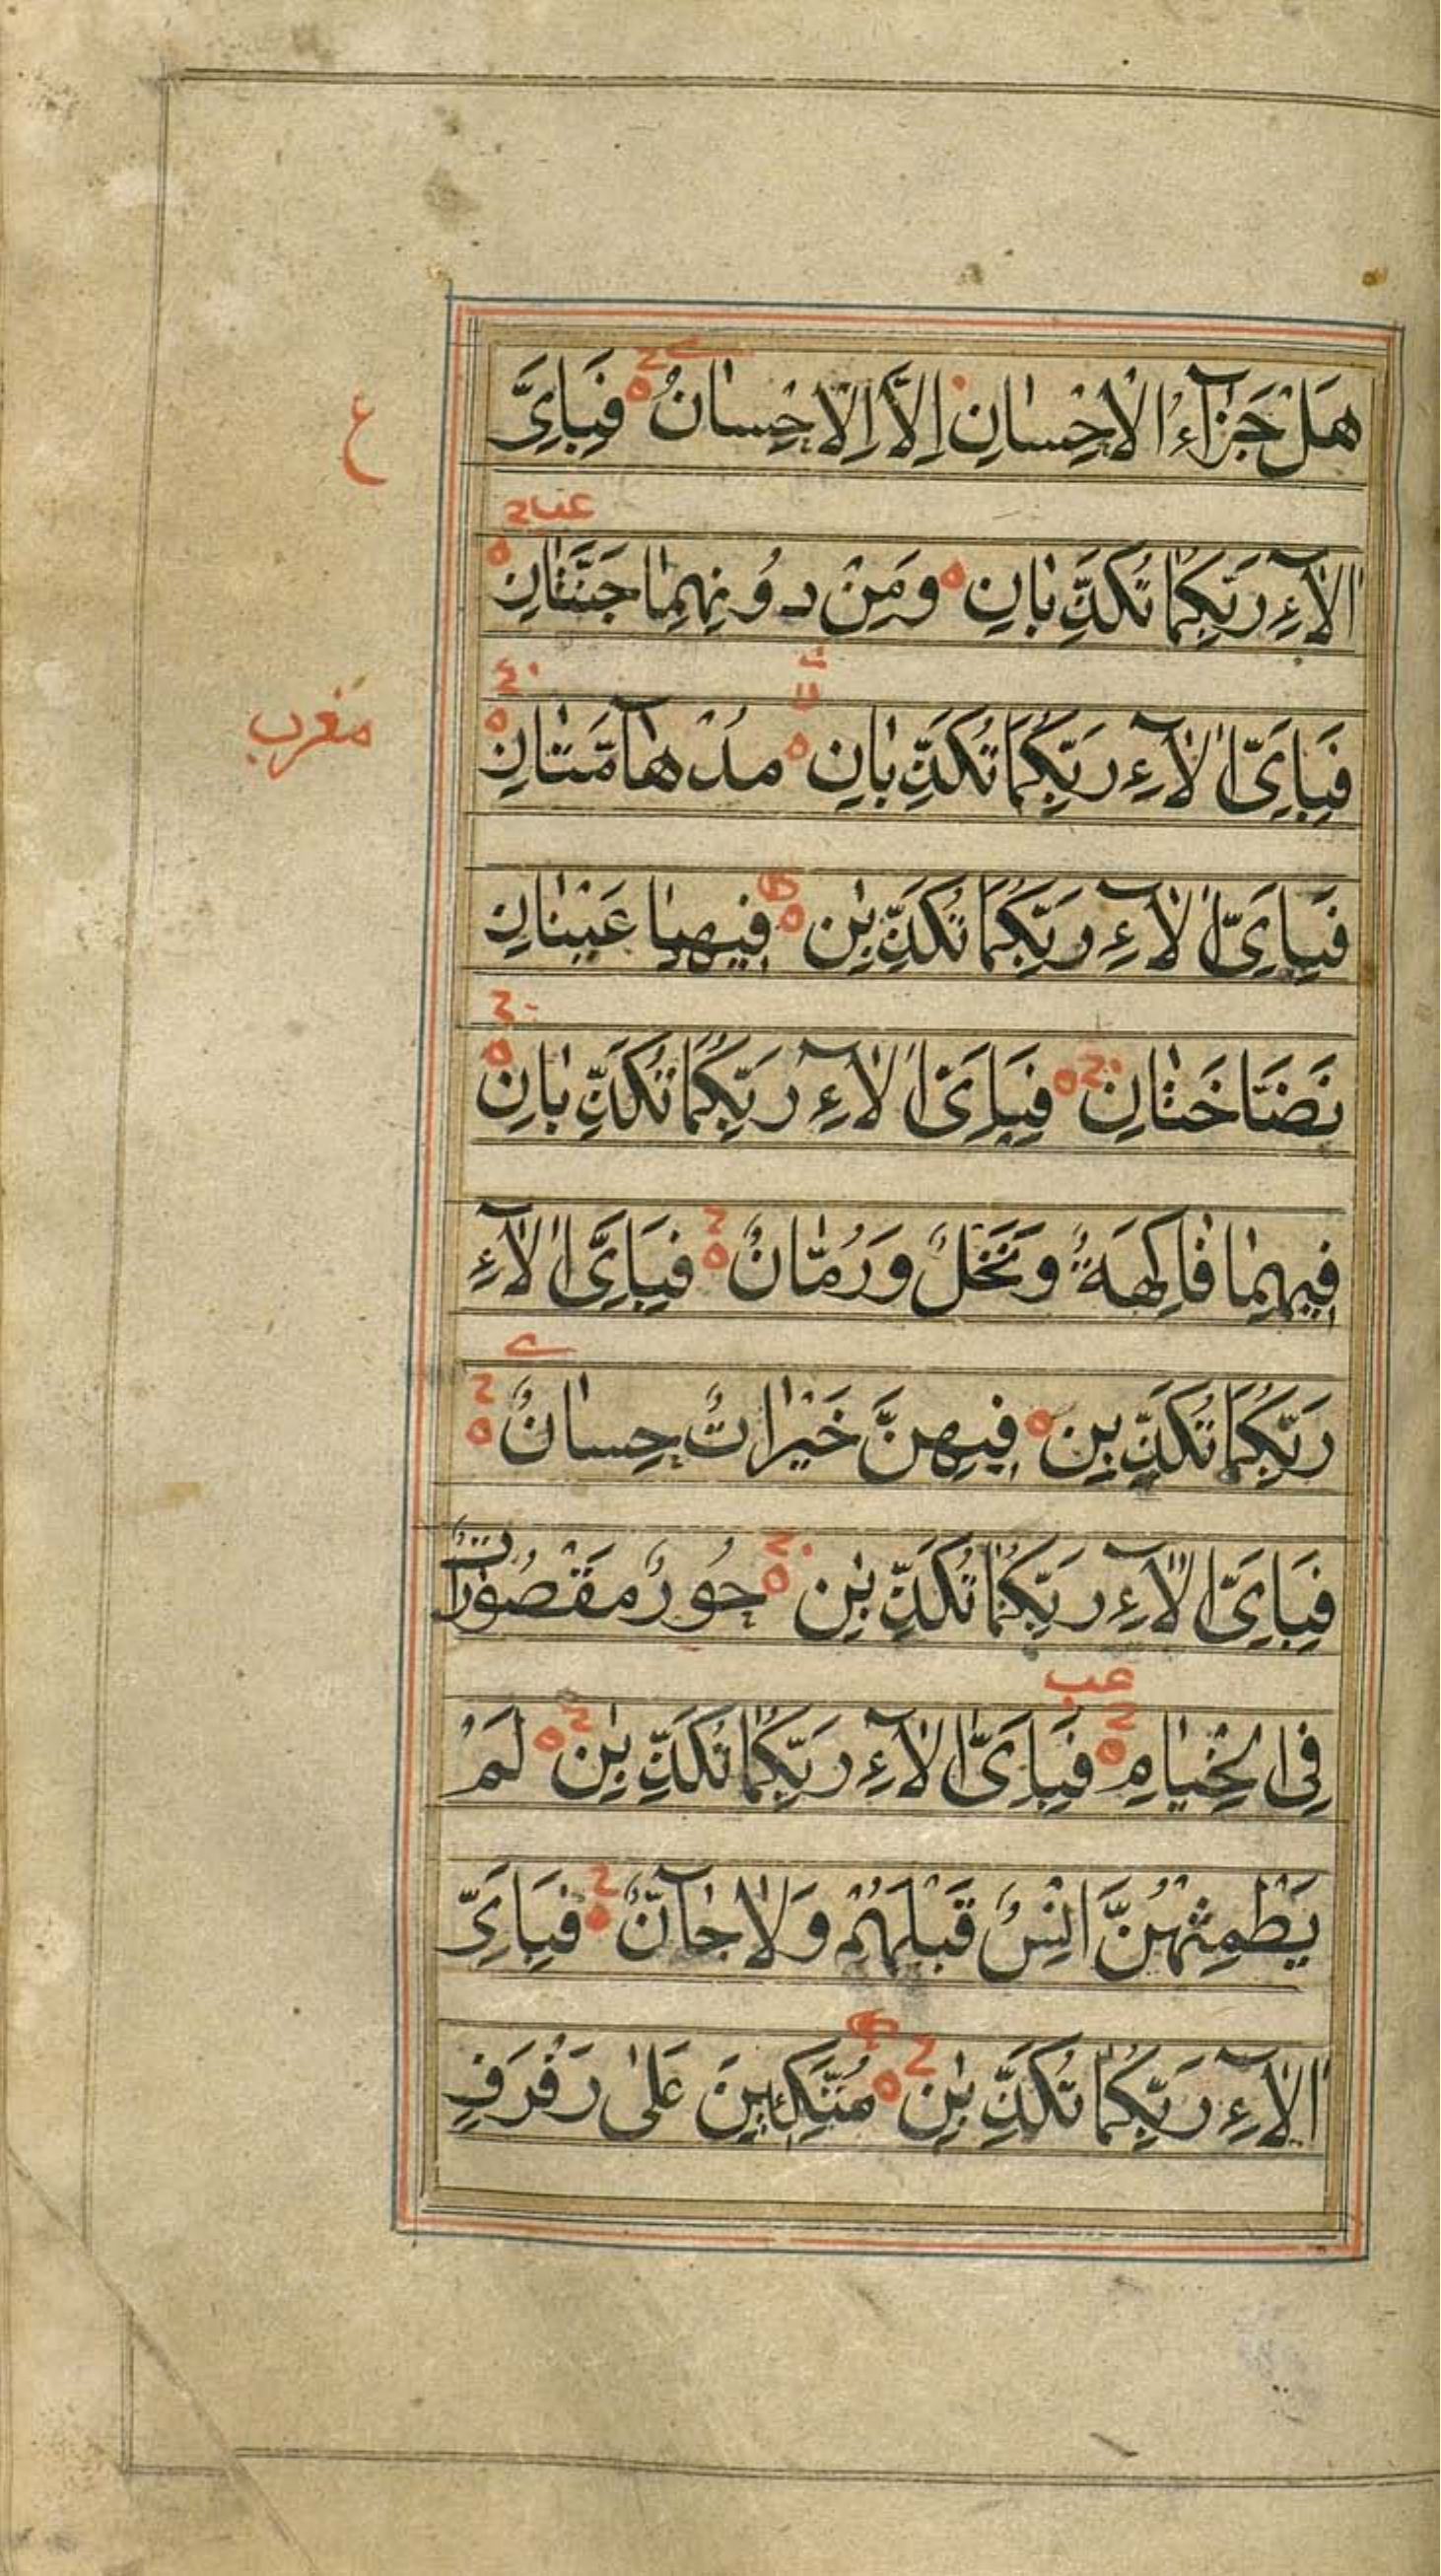 هَلْ جَزَآءُ الْاِحْسَانِ اِلَّا الْاِحْسَانُ فَبِاَىِّ
ع
عب
اٰلَآءِ رَبِّكُمَا تُكَذِّبَانِ وَمِنْ دُونِهِمَا جَنَّتَانِ
فَبِاَىِّ اٰلَآءِ رَبِّكُمَا تُكَذِّبَانِ مُدْهَآمَّتَانِ
مغرب
فَبِاَىِّ اٰلَآءِ رَبِّكُمَا تُكَذِّبٰنِ فِيهِمَا عَيْنَانِ
نَضَّاخَتَانِ فَبِاَىِّ اٰلَآءِ رَبِّكُمَا تُكَذِّبَانِ
فِيهِمَا فَاكِهَةٌ وَنَخْلٌ وَرُمَّانٌ فَبِاَىِّ اٰلَآءِ
رَبِّكُمَا تُكَذِّبٰنِ فِيهِنَّ خَيْرَاتٌ حِسَانٌ
فَبِاَىِّ اٰلَآءِ رَبِّكُمَا تُكَذِّبٰنِ حُورٌ مَقْصُورَاتٌ
عب
فِى الْخِيَامِ فَبِاَىِّ اٰلَآءِ رَبِّكُمَا تُكَذِّبٰنِ لَمْ
يَطْمِثْهُنَّ اِنْسٌ قَبْلَهُمْ وَلَا جَآنٌّ فَبِاَىِّ
اٰلَآءِ رَبِّكُمَا تُكَذِّبٰنِ مُتَّكِئِينَ عَلٰى رَفْرَفٍ